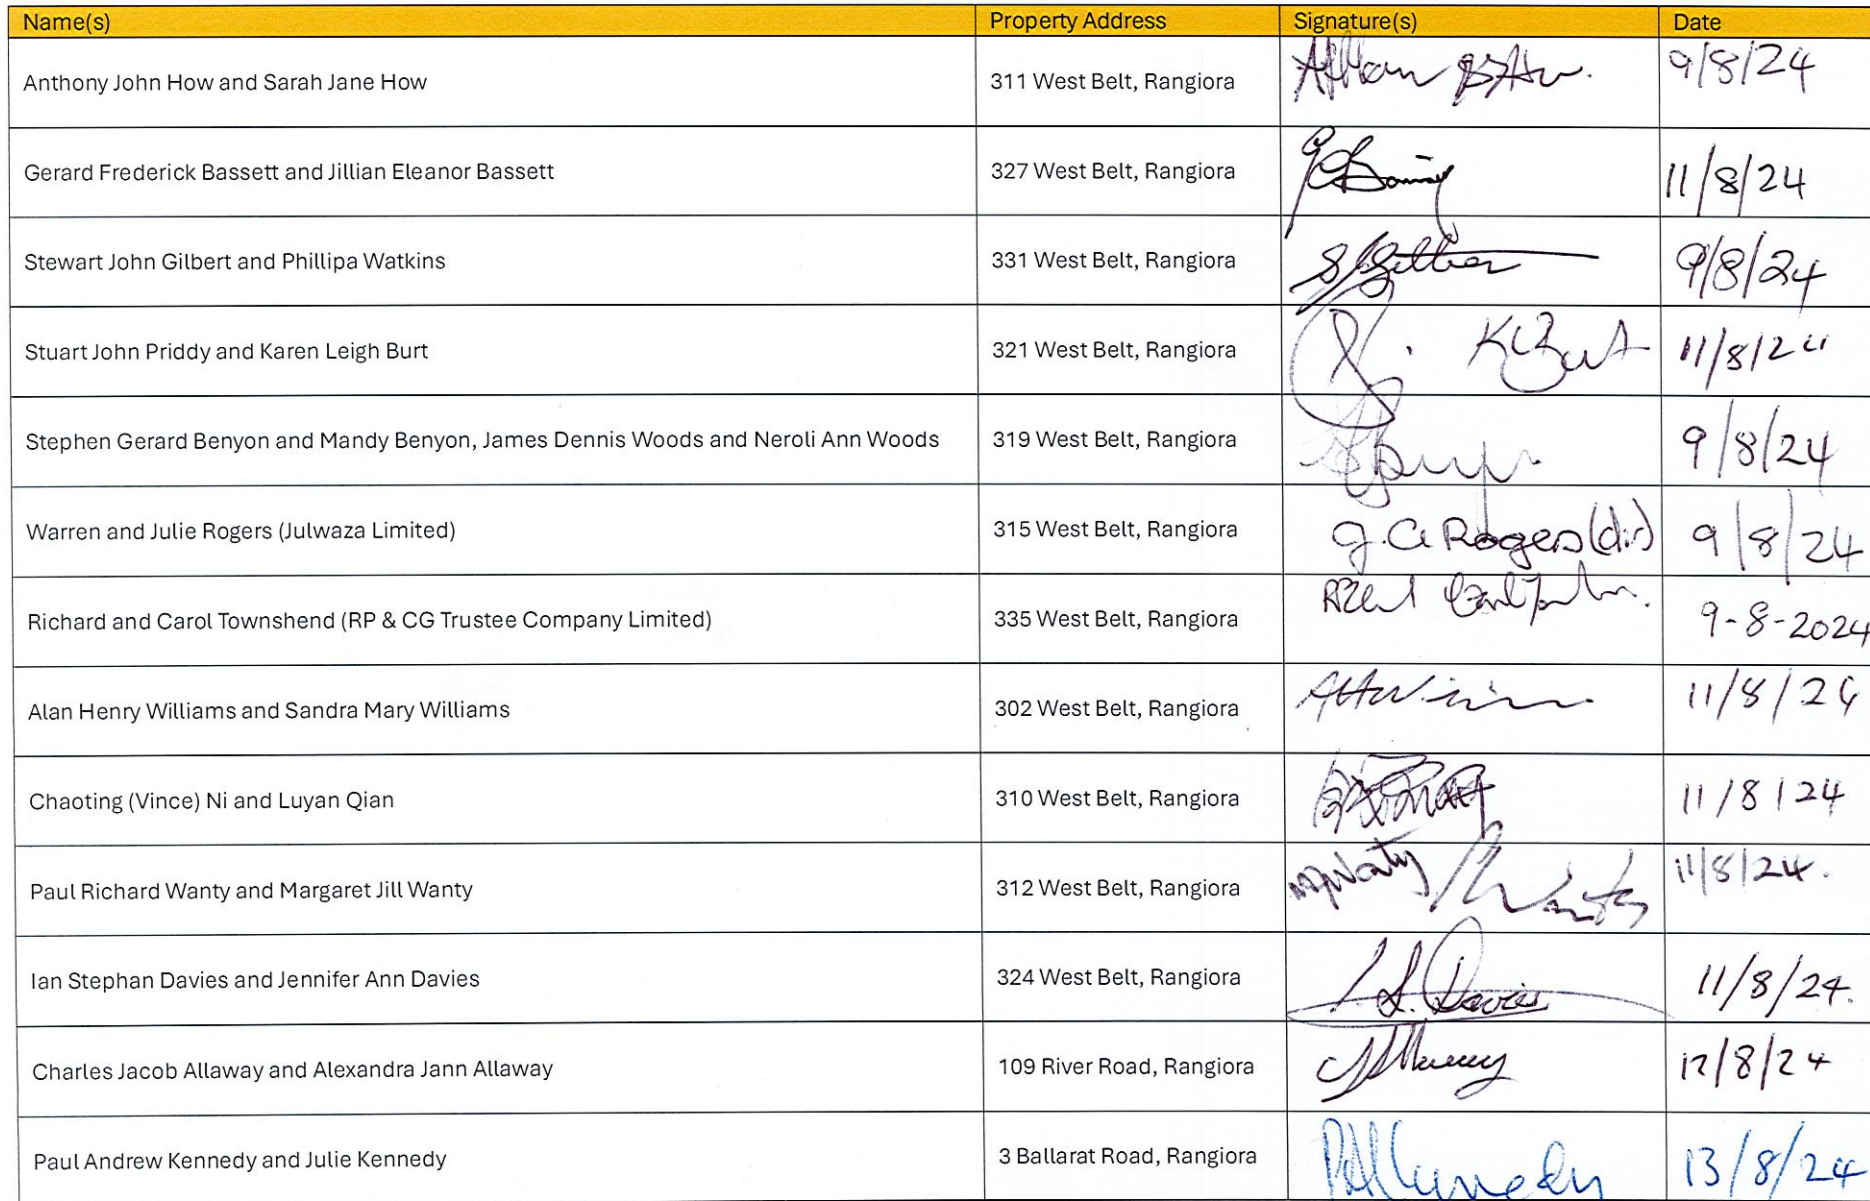 Name(s) Property Address Signature(s) Date
Anthony John How and Sarah Jane How 311 West Belt, Rangiora 9/8/24
Gerard Frederick Bassett and Jillian Eleanor Bassett 327 West Belt, Rangiora 11/8/24
Stewart John Gilbert and Phillipa Watkins 331 West Belt, Rangiora 9/8/24
Stuart John Priddy and Karen Leigh Burt 321 West Belt, Rangiora KLBurt 11/8/24
Stephen Gerard Benyon and Mandy Benyon, James Dennis Woods and Neroli Ann Woods 319 West Belt, Rangiora 9/8/24
Warren and Julie Rogers (Julwaza Limited) 315 West Belt, Rangiora J.A Rogers (dir) 9/8/24
Richard and Carol Townshend (RP & CG Trustee Company Limited) 335 West Belt, Rangiora 9-8-2024
Alan Henry Williams and Sandra Mary Williams 302 West Belt, Rangiora 11/8/24
Chaoting (Vince) Ni and Luyan Qian 310 West Belt, Rangiora 11/8/24
Paul Richard Wanty and Margaret Jill Wanty 312 West Belt, Rangiora MJWanty 11/8/24.
Ian Stephan Davies and Jennifer Ann Davies 324 West Belt, Rangiora I. S. Davies 11/8/24.
Charles Jacob Allaway and Alexandra Jann Allaway 109 River Road, Rangiora 12/8/24
Paul Andrew Kennedy and Julie Kennedy 3 Ballarat Road, Rangiora PAKennedy 13/8/24